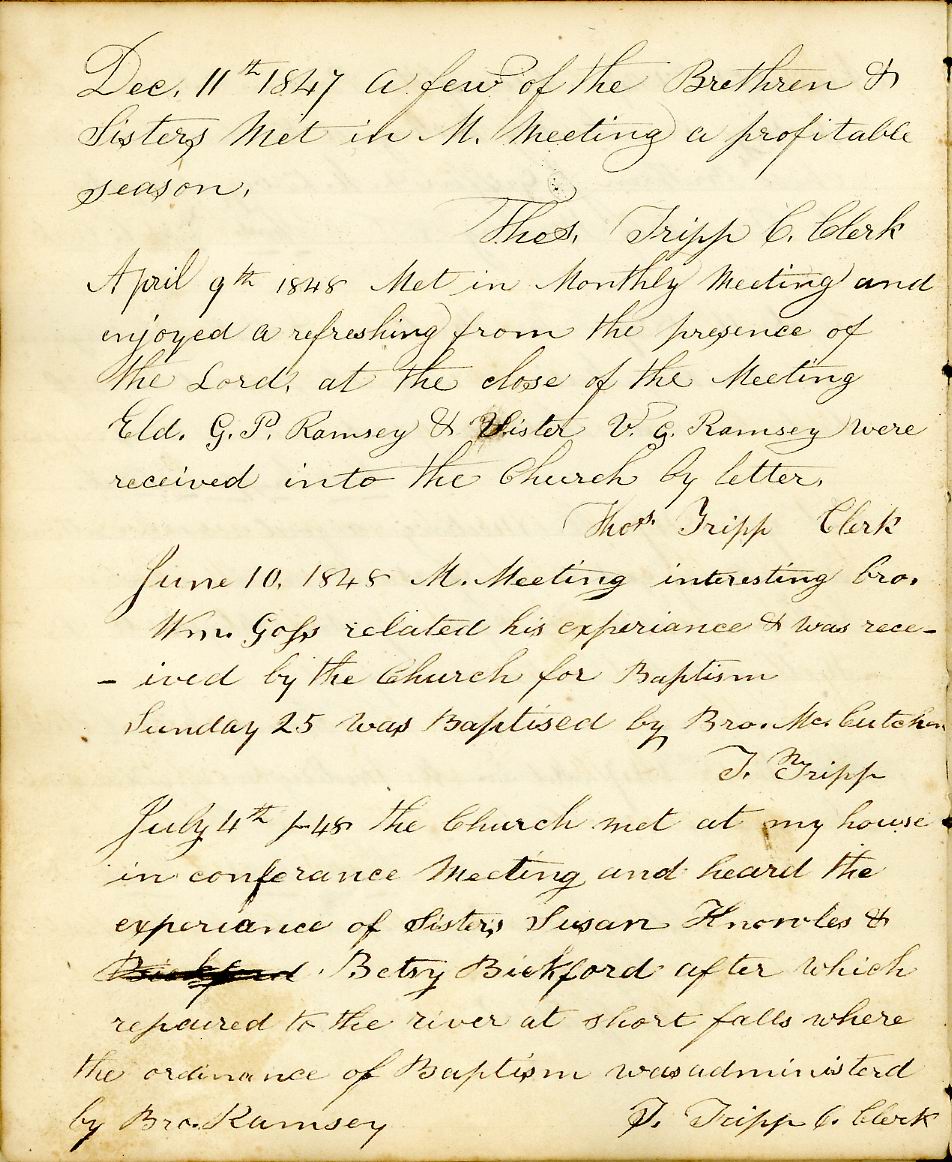 Dec. 11th 1847 A few of the Brethren &
Sisters Met in M. Meeting a profitable
season.
Thos. Tripp C. Clerk
April 9th 1848 Met in Monthly Meeting and
enjoyed a refreshing from the presence of
the Lord. at the close of the Meeting
Eld. G. P. Ramsey & Sister V. G. Ramsey were
received into the Church by letter.
Thos Tripp Clerk
June 10. 1848 M. Meeting interesting bro.
Wm. Goss related his experiance & was rece-
- ived by the Church for Baptism
Sunday 25 was Baptised by Bro. Mc.Cutchen
T. Tripp
July 4th /-48 the Church met at my house
in conferance Meeting and heard the
experiance of Sisters Susan Knowles &
Bickford Betsy Bickford after which
repaired to the river at short falls where
the ordinance of Baptism was administerd
by Bro. Ramsey T. Tripp C. Clerk